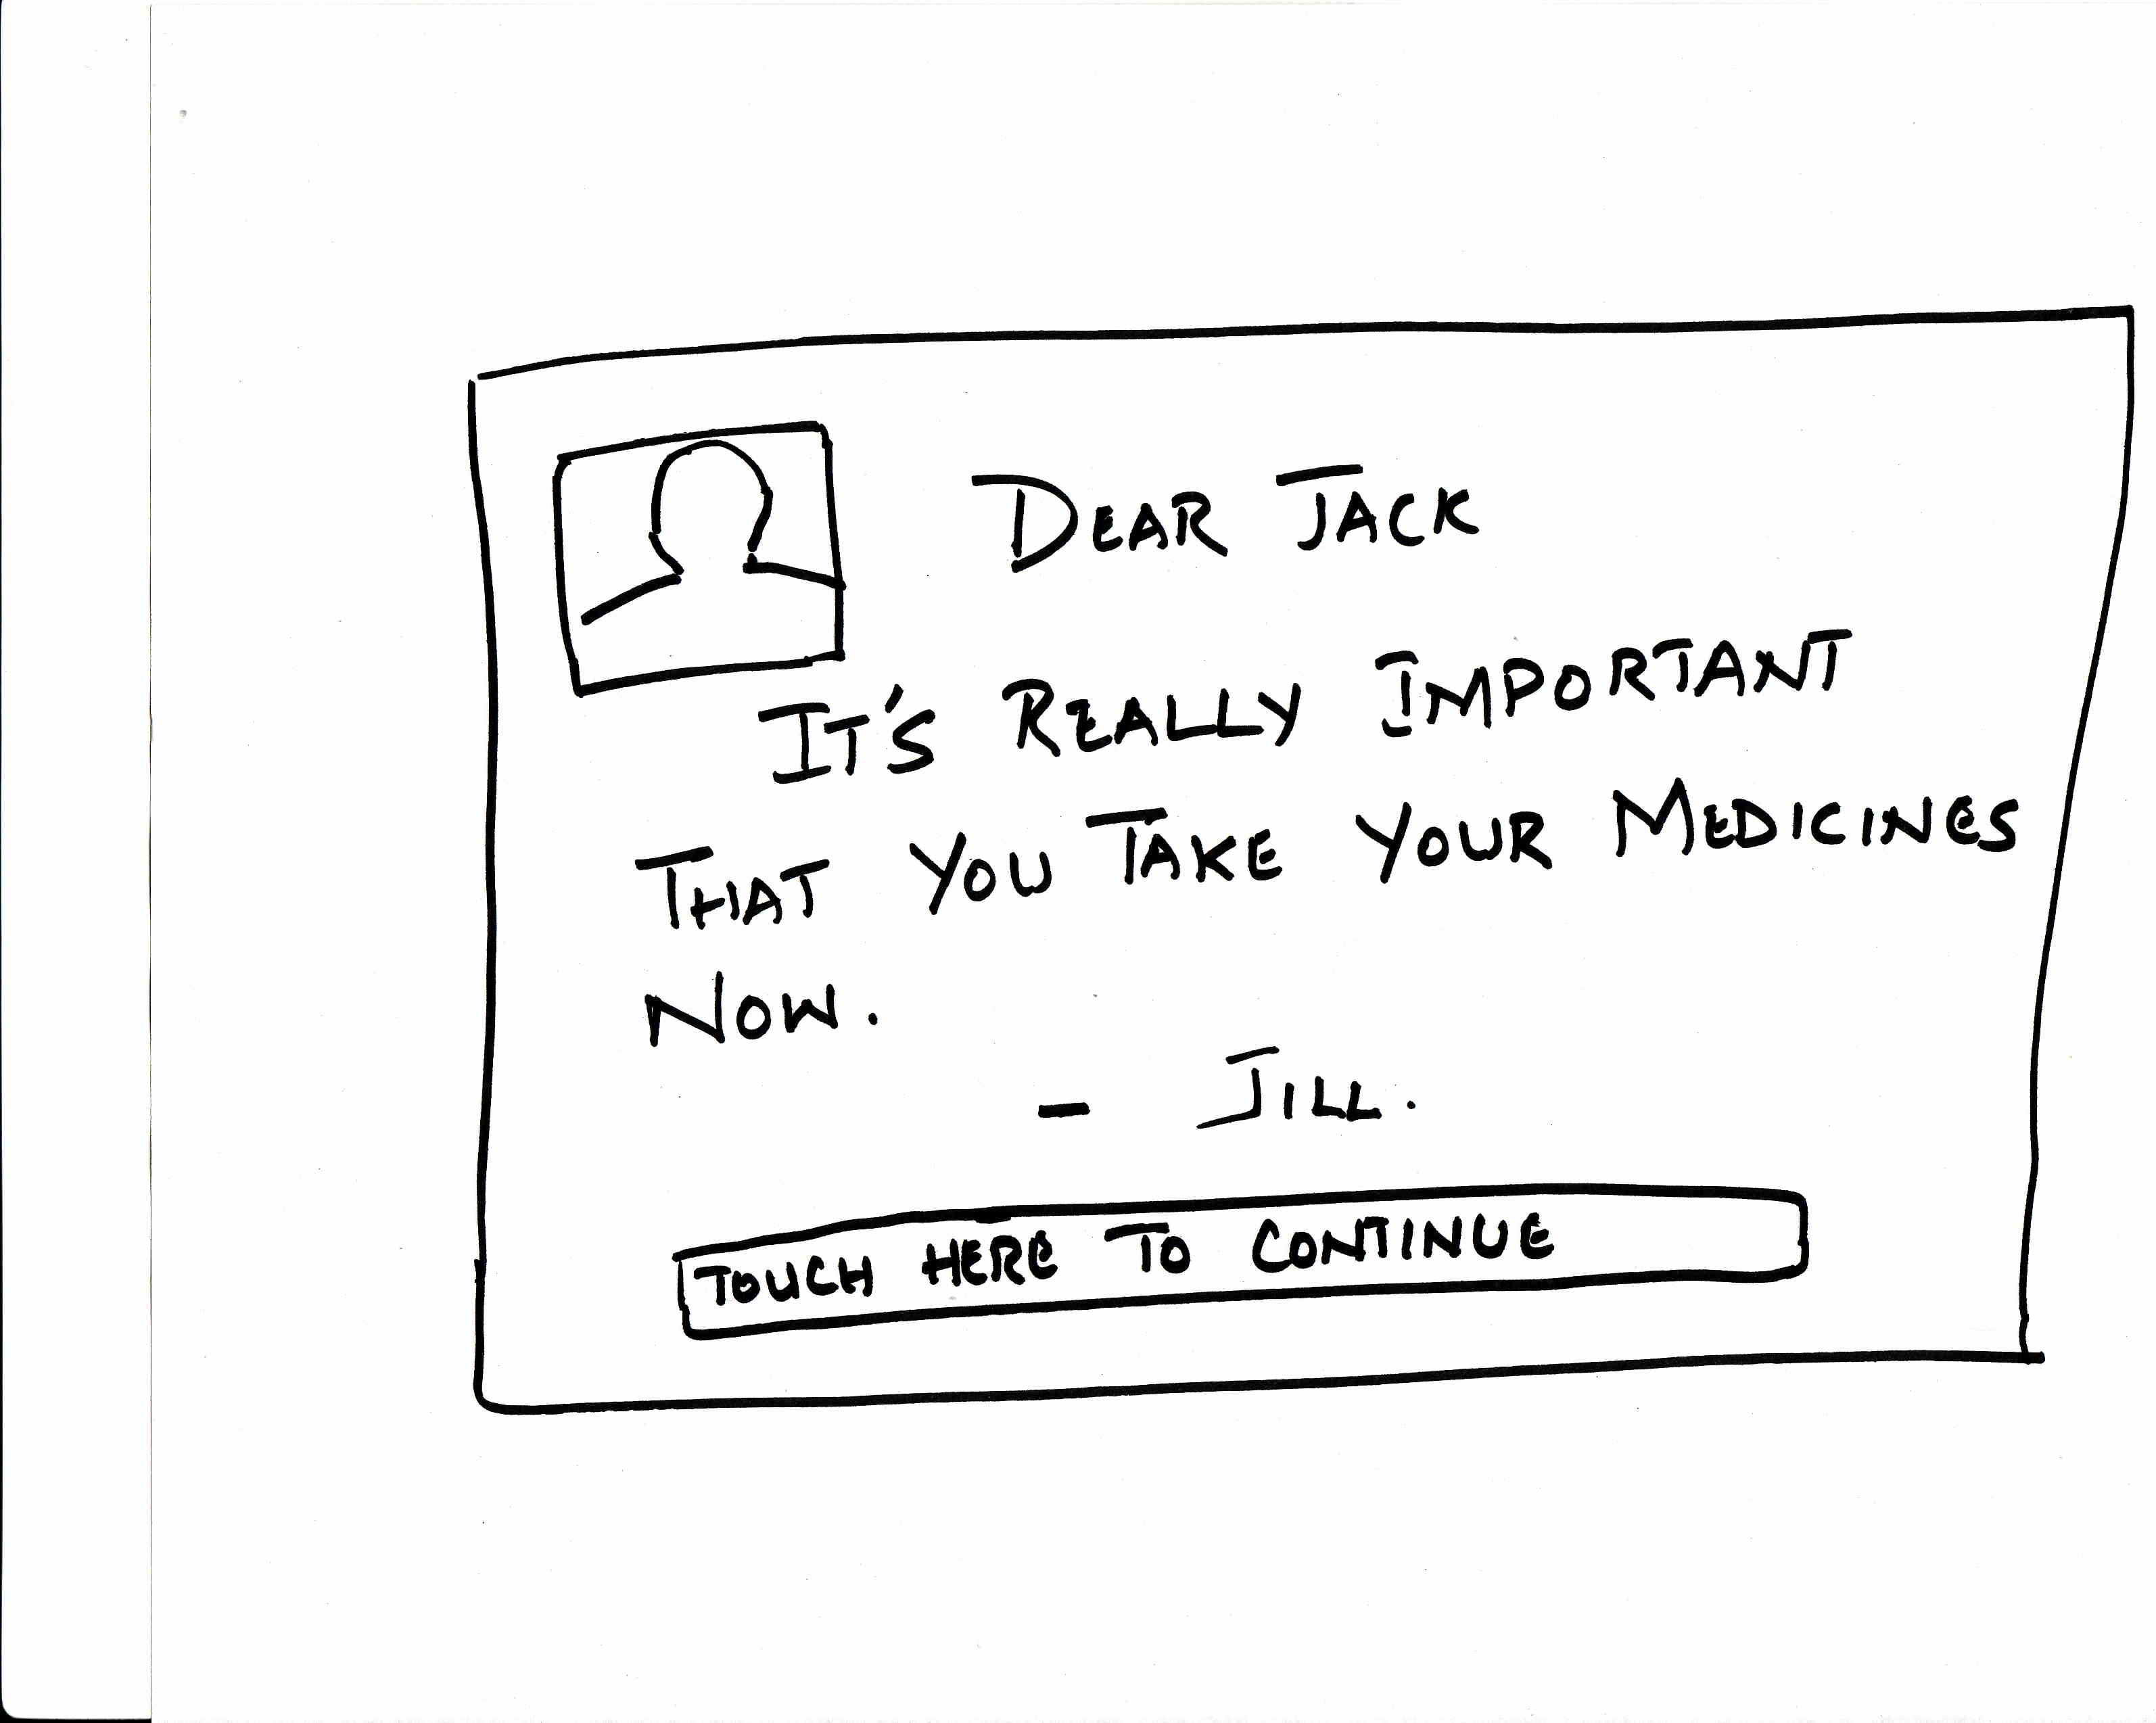 DEAR JACK
IT'S REALLY IMPORTANT
THAT YOU TAKE YOUR MEDICINES
NOW.
- JILL.
TOUCH HERE TO CONTINUE